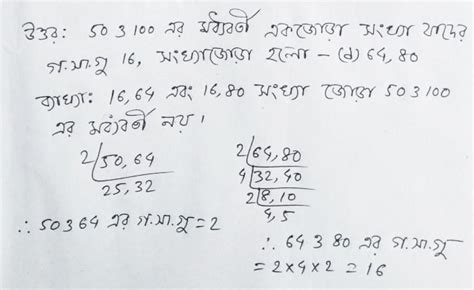 উত্তর: 50 ও 100 এর মধ্যবর্তী একজোড়া সংখ্যা যাদের
গ.সা.গু 16, সংখ্যাজোড়া হলো - (d) 64, 80
ব্যাখ্যা: 16, 64 এবং 16, 80 সংখ্যা জোড়া 50 ও 100
এর মধ্যবর্তী নয়।
2 50, 64
25, 32
∴ 50 ও 64 এর গ.সা.গু = 2
2 64, 80
4 32, 40
2 8, 10
4, 5
∴ 64 ও 80 এর গ.সা.গু
= 2 × 4 × 2 = 16